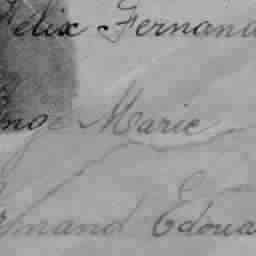 Felix Fernand
Ange Marie
Armand Edoua